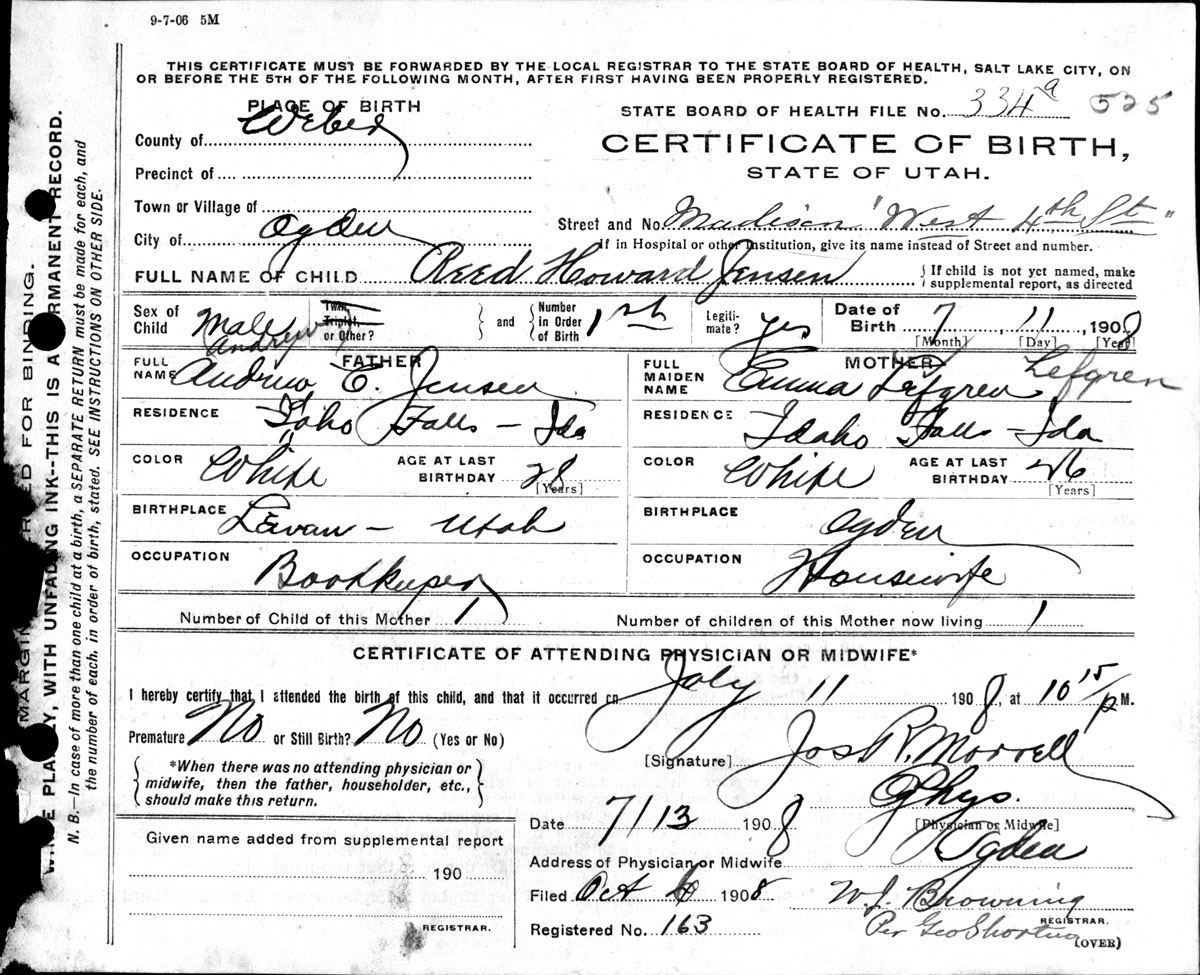 9-7-06 5M
THIS CERTIFICATE MUST BE FORWARDED BY THE LOCAL REGISTRAR TO THE STATE BOARD OF HEALTH, SALT LAKE CITY, ON
OR BEFORE THE 5TH OF THE FOLLOWING MONTH, AFTER FIRST HAVING BEEN PROPERLY REGISTERED.
PLACE OF BIRTH
STATE BOARD OF HEALTH FILE No. 334a 525
County of Weber
CERTIFICATE OF BIRTH,
STATE OF UTAH.
Precinct of
Town or Village of
Street and No. Madison "West 4th St"
City of Ogden
If in Hospital or other Institution, give its name instead of Street and number.
FULL NAME OF CHILD Reed Howard Jensen
If child is not yet named, make
supplemental report, as directed
Sex of Child Male
Twin, Triplet, or Other?
and
Number in Order of Birth 1st
Legiti- mate? yes
Date of Birth 7, 11, 1908
[Month] [Day] [Year]
Andrew
FATHER
FULL NAME Andrew E. Jensen
RESIDENCE Idaho Falls - Ida
COLOR White
AGE AT LAST BIRTHDAY 28
[Years]
BIRTHPLACE Levan - Utah
OCCUPATION Bookkeeper
MOTHER
FULL MAIDEN NAME Emma Lefgren Lefgren
RESIDENCE Idaho Falls - Ida
COLOR White
AGE AT LAST BIRTHDAY 26
[Years]
BIRTHPLACE Ogden
OCCUPATION Housewife
Number of Child of this Mother 1
Number of children of this Mother now living 1
CERTIFICATE OF ATTENDING PHYSICIAN OR MIDWIFE*
I hereby certify that I attended the birth of this child, and that it occurred on July 11 1908, at 10 15 P M.
Premature No or Still Birth? No (Yes or No)
[Signature] Jos R. Morrell
*When there was no attending physician or
midwife, then the father, householder, etc.,
should make this return.
Phys.
[Physician or Midwife]
Date 7/13 1908
Address of Physician or Midwife Ogden
Given name added from supplemental report
190
REGISTRAR.
Filed Oct 6 1908
W. J. Browning
REGISTRAR.
Registered No. 163
Per Geo Shorten
(OVER)
MARGIN RESERVED FOR BINDING.
WRITE PLAINLY, WITH UNFADING INK--THIS IS A PERMANENT RECORD.
N. B.—In case of more than one child at a birth, a SEPARATE RETURN must be made for each, and
the number of each, in order of birth, stated. SEE INSTRUCTIONS ON OTHER SIDE.